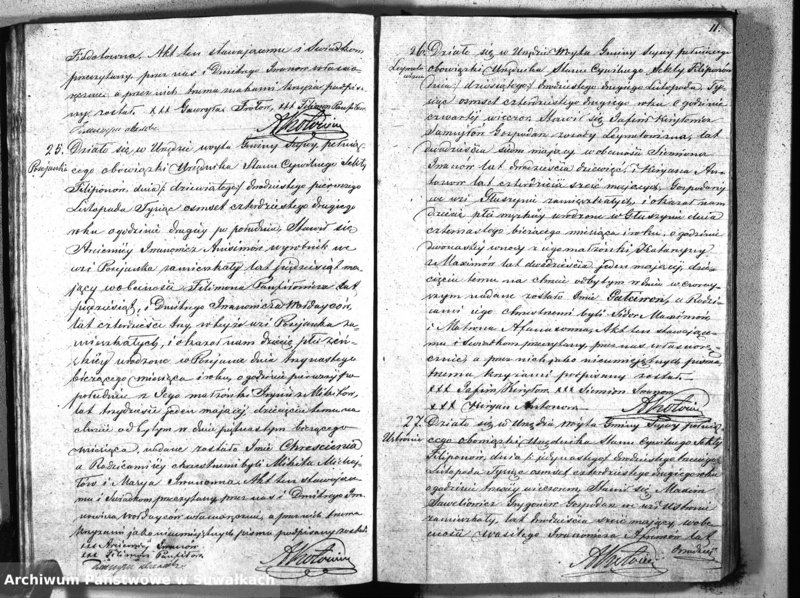 Fiedotowna, Akt ten stawającemu i Świadkom
przeczytany, przez nas i Dmitrego Iwanow własno-
ręcznie a przez nich trzema znakami krzyża podpisa-
ny został. XXX Gawryła Frołow, XXX Filimon Panfiłow
25. Działo się w Urzędzie wójta Gminy Sejwy pełnią-
Posejanka cego obowiązki Urzędnika Stanu Cywilnego Sekty
Filiponów, dnia dziewiątego/ dwudziestego pierwszego
Listopada Tysiąc osmset czterdziestego drugiego
roku o godzinie drugiej po południu, Stawił się
Anisimow wyrobnik we
wsi Posejanka zamieszkały lat pięćdziesiąt ma-
jący w obecności Filimona Panfiłowicza lat
pięćdziesiąt, i Dmitrego Iwanowicza
lat czterdzieści trzy w tejże wsi Posejanka za-
mieszkałych, i okazał nam dziecię płci żeń-
skiej urodzone w Posejance dnia trzynastego
bieżącego miesiąca i roku, o godzinie pierwszej po
południu z Jego małżonki
lat trzydzieści jeden mającej, dziecięciu temu na
chrzcie odbytym w dniu piętnastym bieżącego
miesiąca, nadane zostało Imie Chrescienia
a Rodzicami jej chrzestnemi byli Mikita
i Marya Iwanowna. Akt ten stawające-
mu i Świadkom przeczytany, przez nas i Dmitrego Iwa-
nowicza własnoręcznie, a przez nich trzema
krzyżami jako nieumiejętnych pisma podpisany został
XXX
XXX Filimon Panfiłow
11.
26. Działo się w Urzędzie Wójta Gminy Sejwy pełniącego
obowiązki Urzędnika Stanu Cywilnego Sekty Filiponów
dnia dziesiątego/ dwudziestego drugiego Listopada Ty-
siąc osmset czterdziestego drugiego roku o godzinie
czwartej wieczor, Stawił się Jafim Kiryłowicz
Gospodarz lat
dwadzieścia siedm mający w obecności Siemiona
Iwanow lat dwadzieścia dziewięć, i Kiryana An-
tonow lat czterdzieści sześć mających, Gospodarzy
we wsi Głuszynie zamieszkałych, i okazał nam
dziecię płci męzkiej urodzone w Głuszynie dnia
czternastego bieżącego miesiąca i roku, o godzinie
dwónastej w nocy z jego małżonki Katarzyny
z Maximów lat dwadzieścia jeden mającej, dzie-
cięciu temu na chrzcie odbytym w dniu
nadane zostało Imie a Rodzi-
cami jego chrzestnemi byli Sidor Maximów
i Matrona Afanasowna, Akt ten stawające-
mu i Świadkom przeczytany, przez nas własnorę-
cznie a przez nich jako nieumiejętnych pisma
trzema krzyżami podpisany został.
XXX Jafim Kiryłow, XXX Siemion Iwanow
XXX Kiryan Antonow
27. Działo się w Urzędzie Wójta Gminy Sejwy pełnią-
cego obowiązki Urzędnika Stanu Cywilnego Sekty
Filiponów, dnia jedynastego/ dwudziestego trzeciego
Listopada Tysiąc osmset czterdziestego drugiego roku
o godzinie trzeciej wieczorem, Stawił się Maxim
Sawelowicz Grygorow Gospodarz we wsi
zamieszkały, lat trzydzieści sześć mający w obe-
cności Wasilego Iwanowicza lat
Archiwum Państwowe w Suwałkach